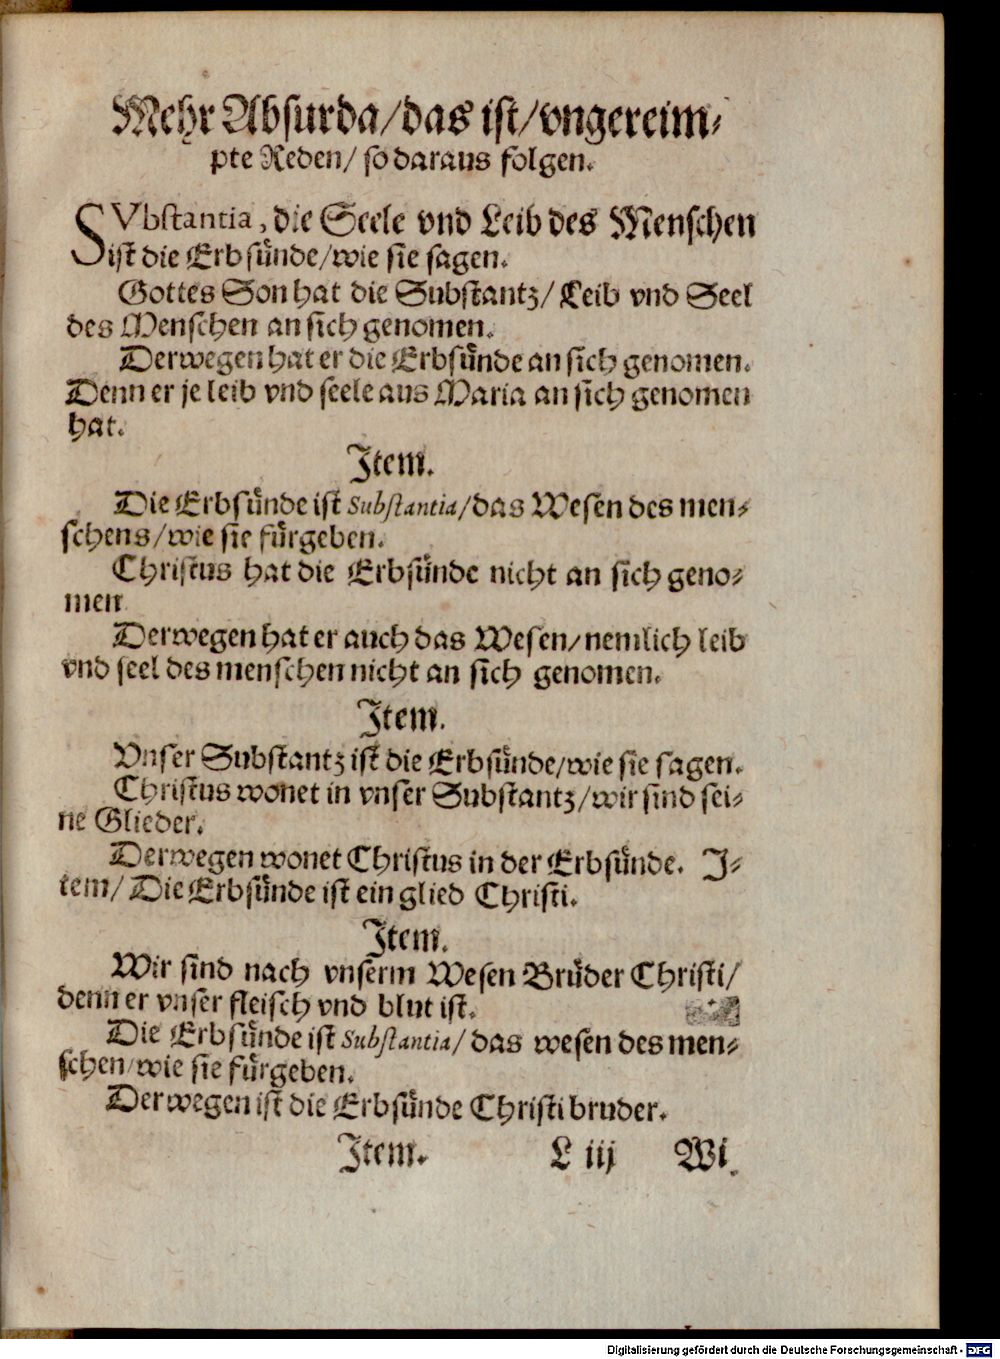 Mehr Absurda/das ist/vngereim⸗
pte Reden/ so daraus folgen.
SVbstantia, die Seele vnd Leib des Menschen
ist die Erbsünde/wie sie sagen.
Gottes Son hat die Substantz/ Leib vnd Seel
des Menschen an sich genomen.
Derwegen hat er die Erbsünde an sich genomen.
Denn er je leib vnd seele aus Maria an sich genomen
hat.
Item.
Die Erbsünde ist Substantia/das Wesen des men⸗
schens/wie sie fürgeben.
Christus hat die Erbsünde nicht an sich geno⸗
men
Derwegen hat er auch das Wesen/nemlich leib
vnd seel des menschen nicht an sich genomen.
Item.
Vnser Substantz ist die Erbsünde/wie sie sagen.
Christus wonet in vnser Substantz/wir sind sei⸗
ne Glieder.
Derwegen wonet Christus in der Erbsünde. I⸗
tem/ Die Erbsünde ist ein glied Christi.
Item.
Wir sind nach vnserm Wesen Brüder Christi/
denn er vnser fleisch vnd blut ist.
Die Erbsünde ist Substantia/ das wesen des men⸗
schen/wie sie fürgeben.
Derwegen ist die Erbsünde Christi bruder.
Item. L iij Wi
Digitalisierung gefördert durch die Deutsche Forschungsgemeinschaft - DFG